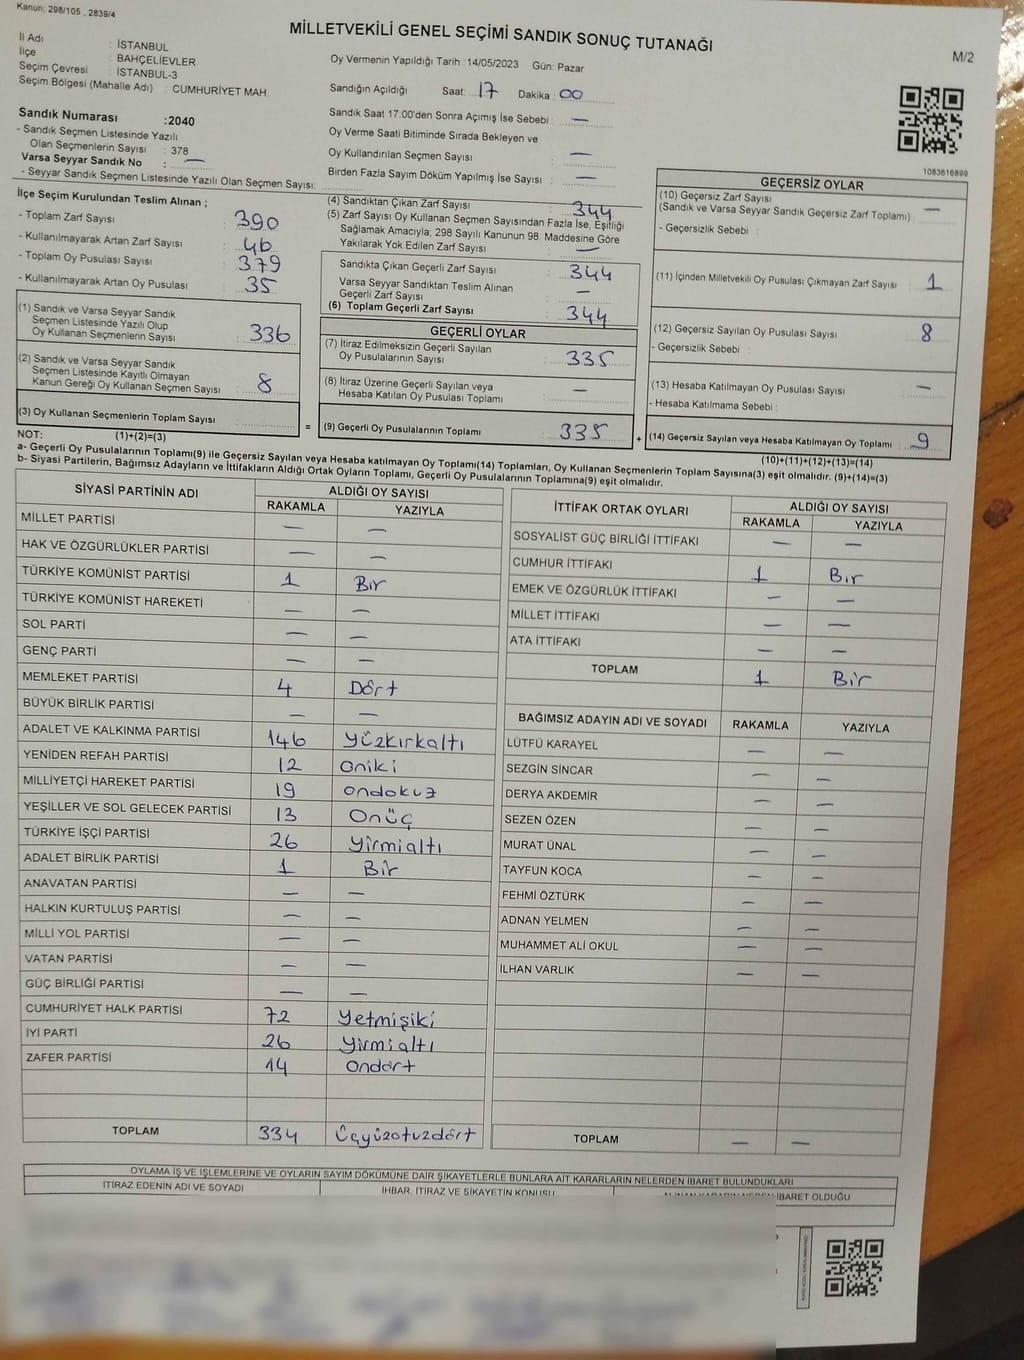 Kanun: 298/105 , 2839/4
MİLLETVEKİLİ GENEL SEÇİMİ SANDIK SONUÇ TUTANAĞI
M/2
İl Adı : İSTANBUL
İlçe : BAHÇELİEVLER
Seçim Çevresi : İSTANBUL-3
Seçim Bölgesi (Mahalle Adı) : CUMHURİYET MAH.
Oy Vermenin Yapıldığı Tarih :14/05/2023 Gün: Pazar
Sandığın Açıldığı Saat: 17 Dakika 00
Sandık Saat 17.00'den Sonra Açımış İse Sebebi : —
Oy Verme Saati Bitiminde Sırada Bekleyen ve
Oy Kullandırılan Seçmen Sayısı : —
Birden Fazla Sayım Döküm Yapılmış İse Sayısı : —
Sandık Numarası :2040
- Sandık Seçmen Listesinde Yazılı
Olan Seçmenlerin Sayısı : 378
Varsa Seyyar Sandık No : —
- Seyyar Sandık Seçmen Listesinde Yazılı Olan Seçmen Sayısı:
1083616899
İlçe Seçim Kurulundan Teslim Alınan ;
- Toplam Zarf Sayısı : 390
- Kullanılmayarak Artan Zarf Sayısı : 46
- Toplam Oy Pusulası Sayısı : 379
- Kullanılmayarak Artan Oy Pusulası : 35
(1) Sandık ve Varsa Seyyar Sandık
Seçmen Listesinde Yazılı Olup
Oy Kullanan Seçmenlerin Sayısı : 336
(2) Sandık ve Varsa Seyyar Sandık
Seçmen Listesinde Kayıtlı Olmayan
Kanun Gereği Oy Kullanan Seçmen Sayısı : 8
(3) Oy Kullanan Seçmenlerin Toplam Sayısı :
(1)+(2)=(3)
(4) Sandıktan Çıkan Zarf Sayısı : 344
(5) Zarf Sayısı Oy Kullanan Seçmen Sayısından Fazla İse, Eşitliği
Sağlamak Amacıyla; 298 Sayılı Kanunun 98. Maddesine Göre
Yakılarak Yok Edilen Zarf Sayısı : —
Sandıkta Çıkan Geçerli Zarf Sayısı : 344
Varsa Seyyar Sandıktan Teslim Alınan
Geçerli Zarf Sayısı : —
(6) Toplam Geçerli Zarf Sayısı : 344
GEÇERLİ OYLAR
(7) İtiraz Edilmeksizin Geçerli Sayılan
Oy Pusulalarının Sayısı : 335
(8) İtiraz Üzerine Geçerli Sayılan veya
Hesaba Katılan Oy Pusulası Toplamı : —
= (9) Geçerli Oy Pusulalarının Toplamı : 335
GEÇERSİZ OYLAR
(10) Geçersiz Zarf Sayısı
(Sandık ve Varsa Seyyar Sandık Geçersiz Zarf Toplamı) : —
- Geçersizlik Sebebi :
(11) İçinden Milletvekili Oy Pusulası Çıkmayan Zarf Sayısı : 1
(12) Geçersiz Sayılan Oy Pusulası Sayısı : 8
- Geçersizlik Sebebi :
(13) Hesaba Katılmayan Oy Pusulası Sayısı : —
- Hesaba Katılmama Sebebi :
+ (14) Geçersiz Sayılan veya Hesaba Katılmayan Oy Toplamı : 9
(10)+(11)+(12)+(13)=(14)
NOT:
a- Geçerli Oy Pusulalarının Toplamı(9) ile Geçersiz Sayılan veya Hesaba katılmayan Oy Toplamı(14) Toplamları, Oy Kullanan Seçmenlerin Toplam Sayısına(3) eşit olmalıdır. (9)+(14)=(3)
b- Siyasi Partilerin, Bağımsız Adayların ve İttifakların Aldığı Ortak Oyların Toplamı, Geçerli Oy Pusulalarının Toplamına(9) eşit olmalıdır.
SİYASİ PARTİNİN ADI ALDIĞI OY SAYISI
RAKAMLA YAZIYLA
MİLLET PARTİSİ — —
HAK VE ÖZGÜRLÜKLER PARTİSİ — —
TÜRKİYE KOMÜNİST PARTİSİ 1 Bir
TÜRKİYE KOMÜNİST HAREKETİ — —
SOL PARTİ — —
GENÇ PARTİ — —
MEMLEKET PARTİSİ 4 Dört
BÜYÜK BİRLİK PARTİSİ — —
ADALET VE KALKINMA PARTİSİ 146 yüzkırkaltı
YENİDEN REFAH PARTİSİ 12 oniki
MİLLİYETÇİ HAREKET PARTİSİ 19 ondokuz
YEŞİLLER VE SOL GELECEK PARTİSİ 13 Onüç
TÜRKİYE İŞÇİ PARTİSİ 26 yirmialtı
ADALET BİRLİK PARTİSİ 1 Bir
ANAVATAN PARTİSİ — —
HALKIN KURTULUŞ PARTİSİ — —
MİLLİ YOL PARTİSİ — —
VATAN PARTİSİ — —
GÜÇ BİRLİĞİ PARTİSİ — —
CUMHURİYET HALK PARTİSİ 72 yetmişiki
İYİ PARTİ 26 yirmialtı
ZAFER PARTİSİ 14 ondört
TOPLAM 334 üçyüzotuzdört
İTTİFAK ORTAK OYLARI ALDIĞI OY SAYISI
RAKAMLA YAZIYLA
SOSYALİST GÜÇ BİRLİĞİ İTTİFAKI — —
CUMHUR İTTİFAKI 1 Bir
EMEK VE ÖZGÜRLÜK İTTİFAKI — —
MİLLET İTTİFAKI — —
ATA İTTİFAKI — —
TOPLAM 1 Bir
BAĞIMSIZ ADAYIN ADI VE SOYADI RAKAMLA YAZIYLA
LÜTFÜ KARAYEL — —
SEZGİN SİNCAR — —
DERYA AKDEMİR — —
SEZEN ÖZEN — —
MURAT ÜNAL — —
TAYFUN KOCA — —
FEHMİ ÖZTÜRK — —
ADNAN YELMEN — —
MUHAMMET ALİ OKUL — —
İLHAN VARLIK — —
TOPLAM — —
OYLAMA İŞ VE İŞLEMLERİNE VE OYLARIN SAYIM DÖKÜMÜNE DAİR ŞİKAYETLERLE BUNLARA AİT KARARLARIN NELERDEN İBARET BULUNDUKLARI
İTİRAZ EDENİN ADI VE SOYADI
İHBAR, İTİRAZ VE ŞİKAYETİN KONUSU
ALINAN KARARIN NEDEN İBARET OLDUĞU